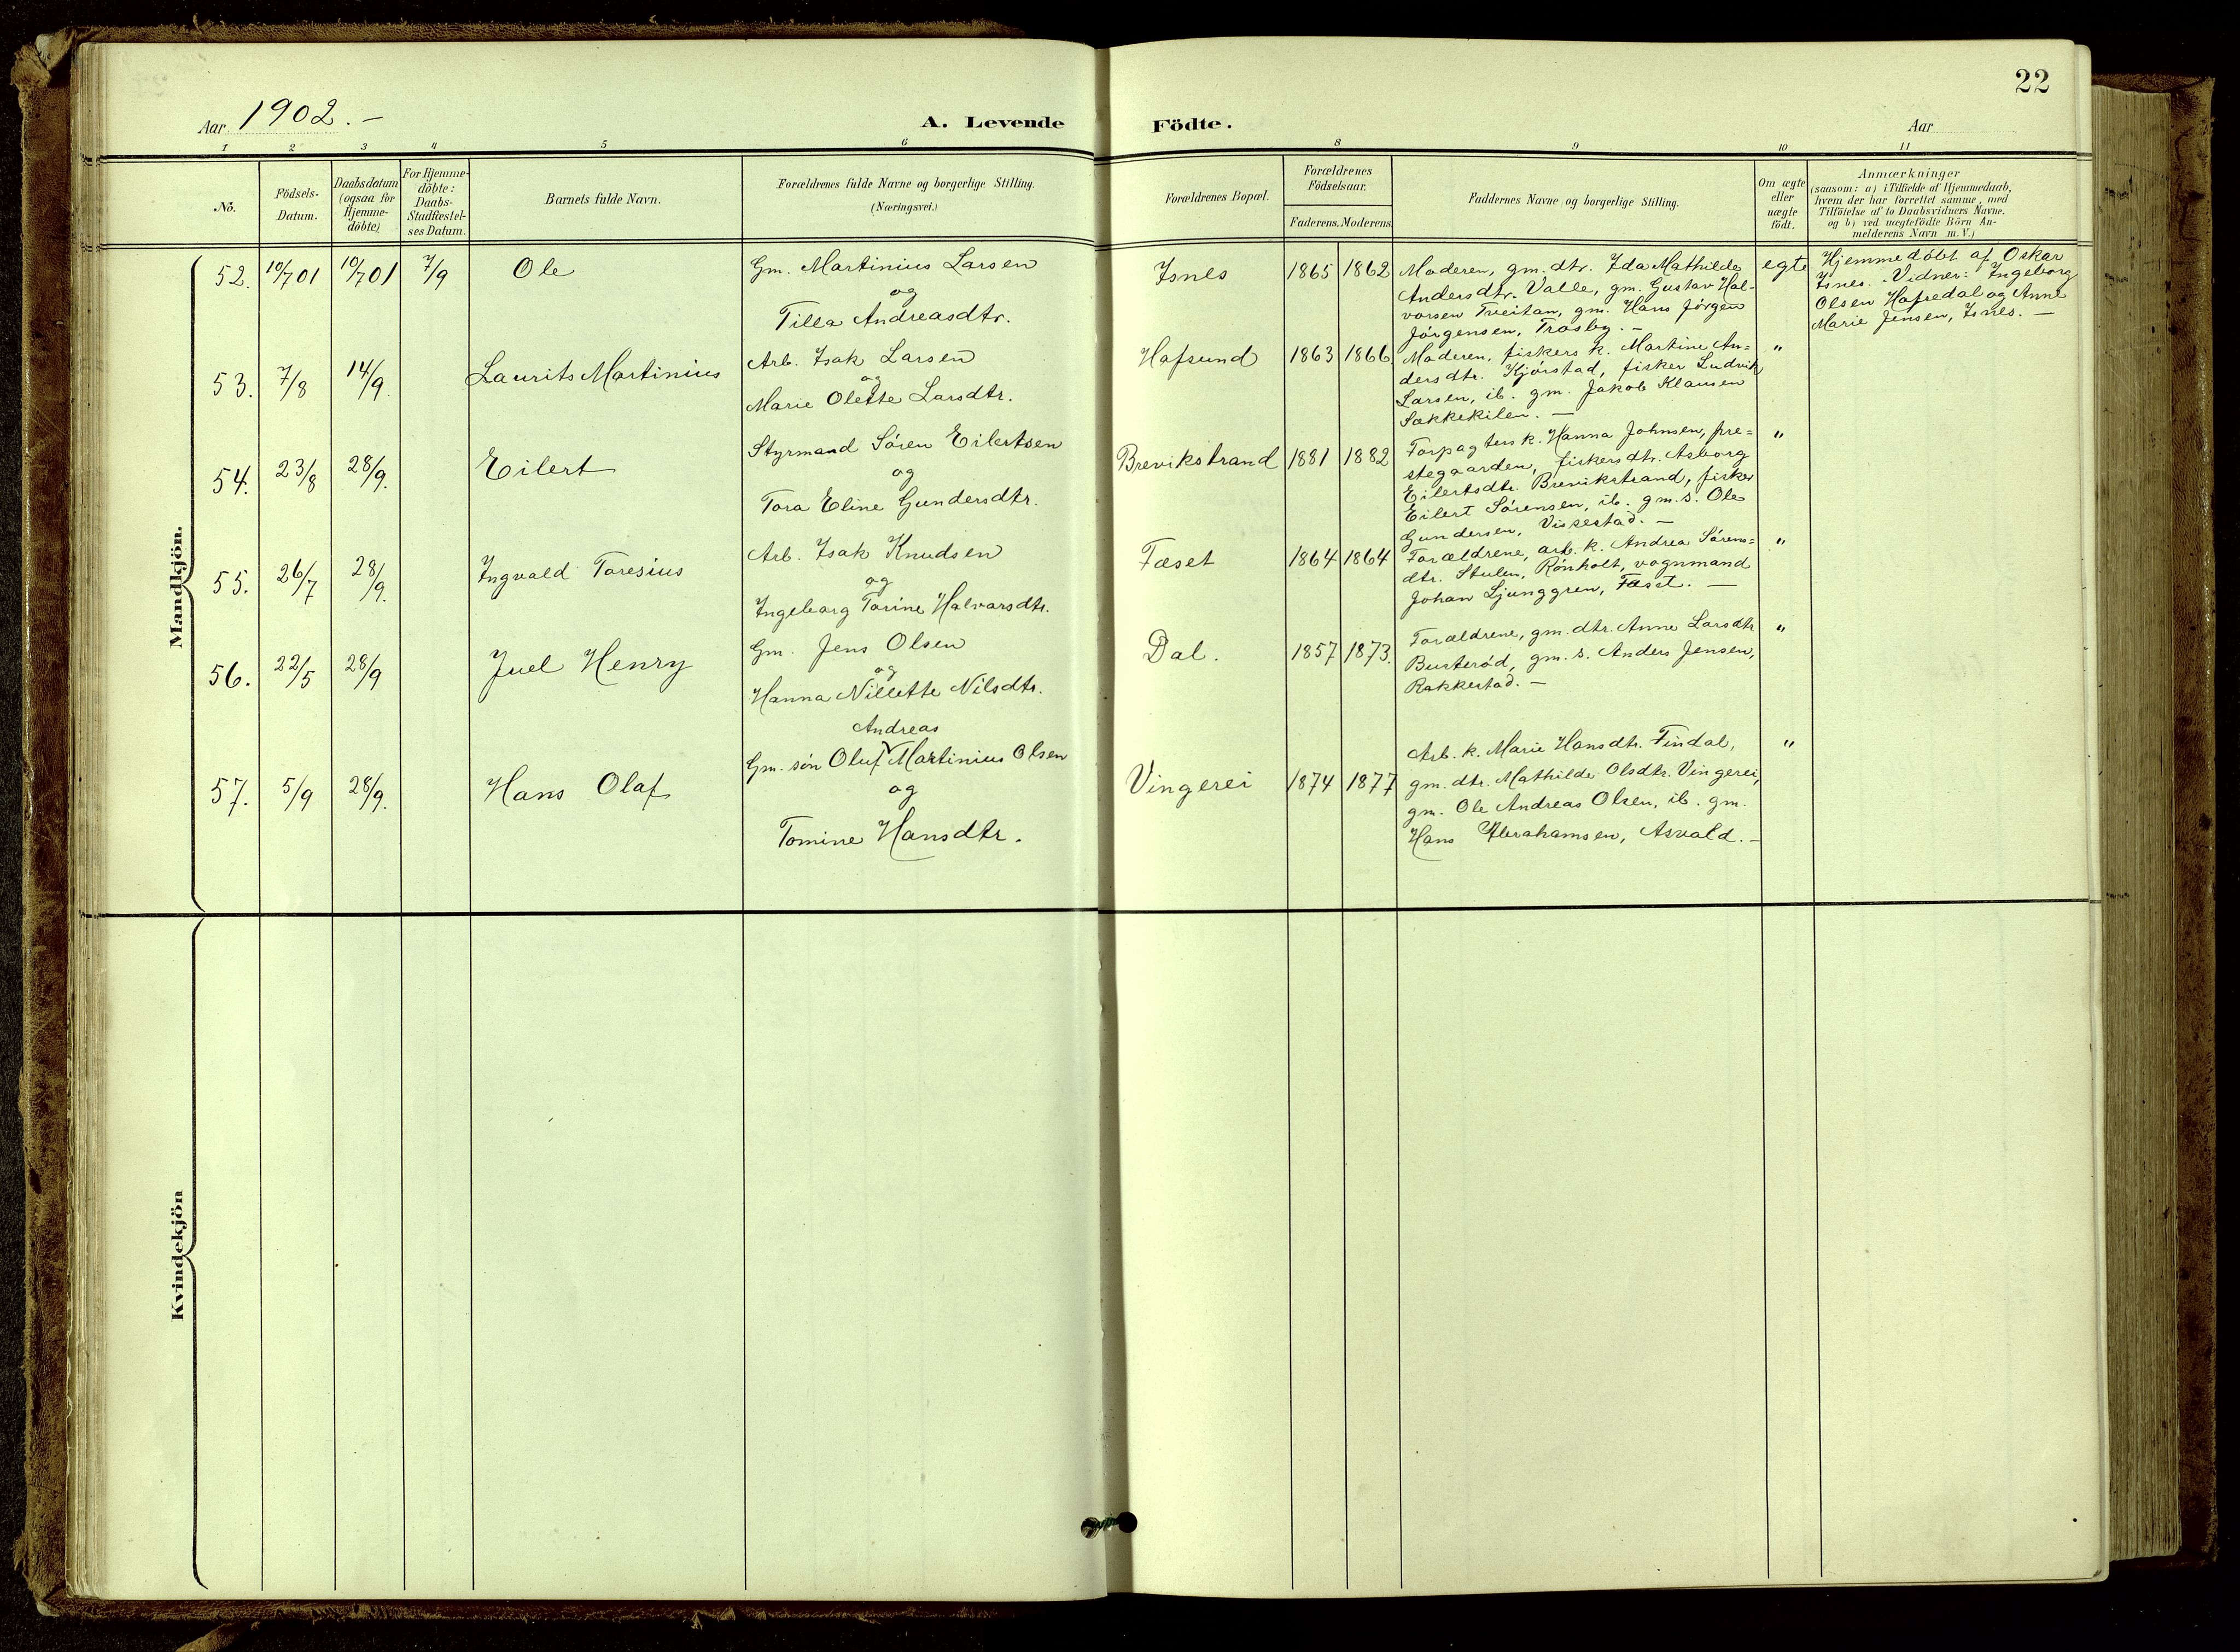 22
Aar 1902.-
A. Levende
Födte.
Aar
1 2 3 4 5 6 8 9 10 11
No.
Födsels-
Datum.
Daabsdatum
(ogsaa for
Hjemme-
döbte)
For Hjemme-
döbte:
Daabs-
Stadfæstel-
ses Datum.
Barnets fulde Navn.
Forældrenes fulde Navne og borgerlige Stilling.
(Næringsvei.)
Forældrenes Bopæl.
Forældrenes
Födselsaar.
Faderens. Moderens.
Faddernes Navne og borgerlige Stilling.
Om ægte
eller
uægte
födt.
Anmærkninger
(saasom: a) i Tilfælde af Hjemmedaab,
hvem der har forrettet samme, med
Tilföielse af to Daabsvidners Navne.
og b) ved uægtefödte Börn An-
melderens Navn m. V.)
Mandkjön.
52. 10/7 01 10/7 01 7/9 Ole
Gm. Martinius Larsen
og
Tilla Andreasdtr.
Isnes 1865 1862
Moderen, gm. dtr. Ida Mathilde
Andersdtr. Valle, gm. Gustav Hal-
vorsen Tveitan, gm. Hans Jörgen
Jörgensen, Trosby. -
egte
Hjemmedöbt af Oskar
Isnes. - Vidner: Ingeborg
Olsen Hafredal og Anne
Marie Jensen, Isnes. -
53. 7/8 14/9. Laurits Martinius
Arb. Isak Larsen
og
Marie Olette Larsdtr.
Hafsund 1863 1866
Moderen, fiskers k. Martine An=
dersdtr. Kjörstad, fisker Ludvik
Larsen, ib. gm. Jakob Klausen
Sækkekilen. -
"
54. 23/8 28/9. Eilert
Styrmand Sören Eilertsen
og
Tora Eline Gundersdtr.
Brevikstrand 1881 1882
Forpagters k. Hanna Johnsen, pre=
stegaarden, fiskers dtr. Asborg
Eilertsdtr. Brevikstrand, fisker
Eilert Sörensen, ib. gm. s. Ole
Gundersen, Vissestad. -
"
55. 26/7 28/9. Ingvald Toresius
Arb. Isak Knudsen
og
Ingeborg Torine Halvorsdtr.
Fæset 1864 1864
Forældrene, arb. k. Andrea Sörens=
dtr. Stulen, Rönholt, vognmand
Johan Ljunggren, Fæset. -
"
56. 22/5 28/9 Juel Henry
Gm. Jens Olsen
og
Hanna Nillette Nilsdtr.
Dal. 1857 1873.
Forældrene, gm. dtr. Anne Larsdtr
Busteröd, gm. s. Anders Jensen,
Rakkestad. -
"
57. 5/9 28/9. Hans Olaf
Andreas
Gm. sön Oluf Martinius Olsen
og
Tomine Hansdtr.
Vingerei 1874 1877
Arb. k. Marie Hansdtr. Findal,
gm. dtr. Mathilde Olsdtr. Vingerei,
gm. Ole Andreas Olsen, ib. gm.
Hans Abrahamsen, Asvald. -
"
Kvindekjön